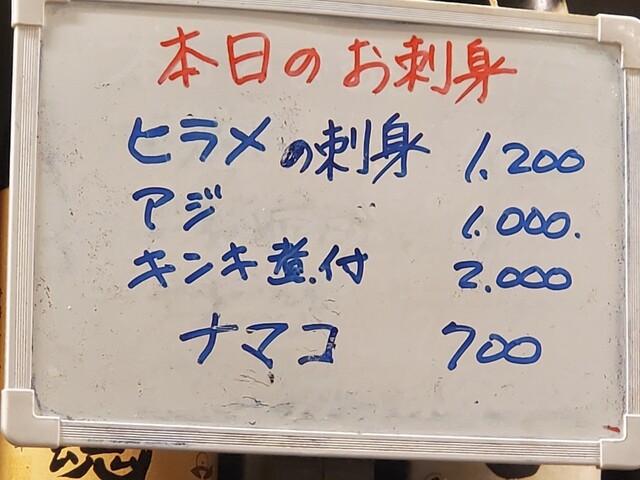 本日のお刺身
ヒラメの刺身 1.200
アジ 1.000.
キンキ煮付 2.000
ナマコ 700
魂